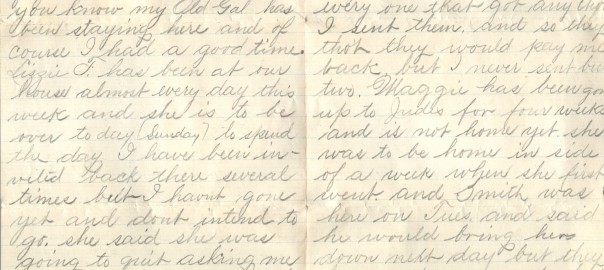 you know my Old Gal has
been staying here and of
course I had a good time.
Lizzie F. has been at our
house almost every day this
week and she is to be
over to day (Sunday) to spend
the day I have been in-
vited back there several
times but I havnt gone
yet and dont intend to
go. she said she was
going to quit asking me
every one that got any
I sent them. and so they
thot they would pay me
back but I never sent but
two. Maggie has been gon
up to Judes for four weeks
and is not home yet. she
was to be home in side
of a week when she first
went. and Smith was
here on Tues. and said
he would bring her
down next day but they